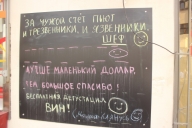 ЗА ЧУЖОЙ СЧЁТ ПЬЮТ
И ТРЕЗВЕННИКИ И ЯЗВЕННИКИ
ШЕФ
ЛУЧШЕ МАЛЕНЬКИЙ ДОЛЛАР,
ЧЕМ БОЛЬШОЕ СПАСИБО!
БЕСПЛАТНАЯ ДЕГУСТАЦИЯ
ВИН!